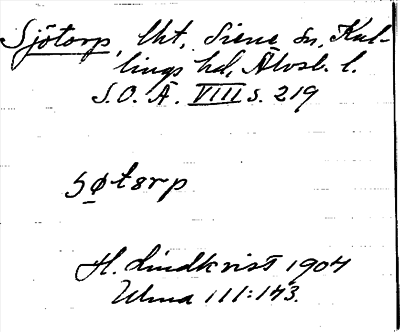 Sjötorp, lht, Siene sn, Kul-
lings hd, Älvsb. l.
S.O.Ä. VIII s. 219
søtərp
H. Lindkvist 1904
Ulma 111:143.